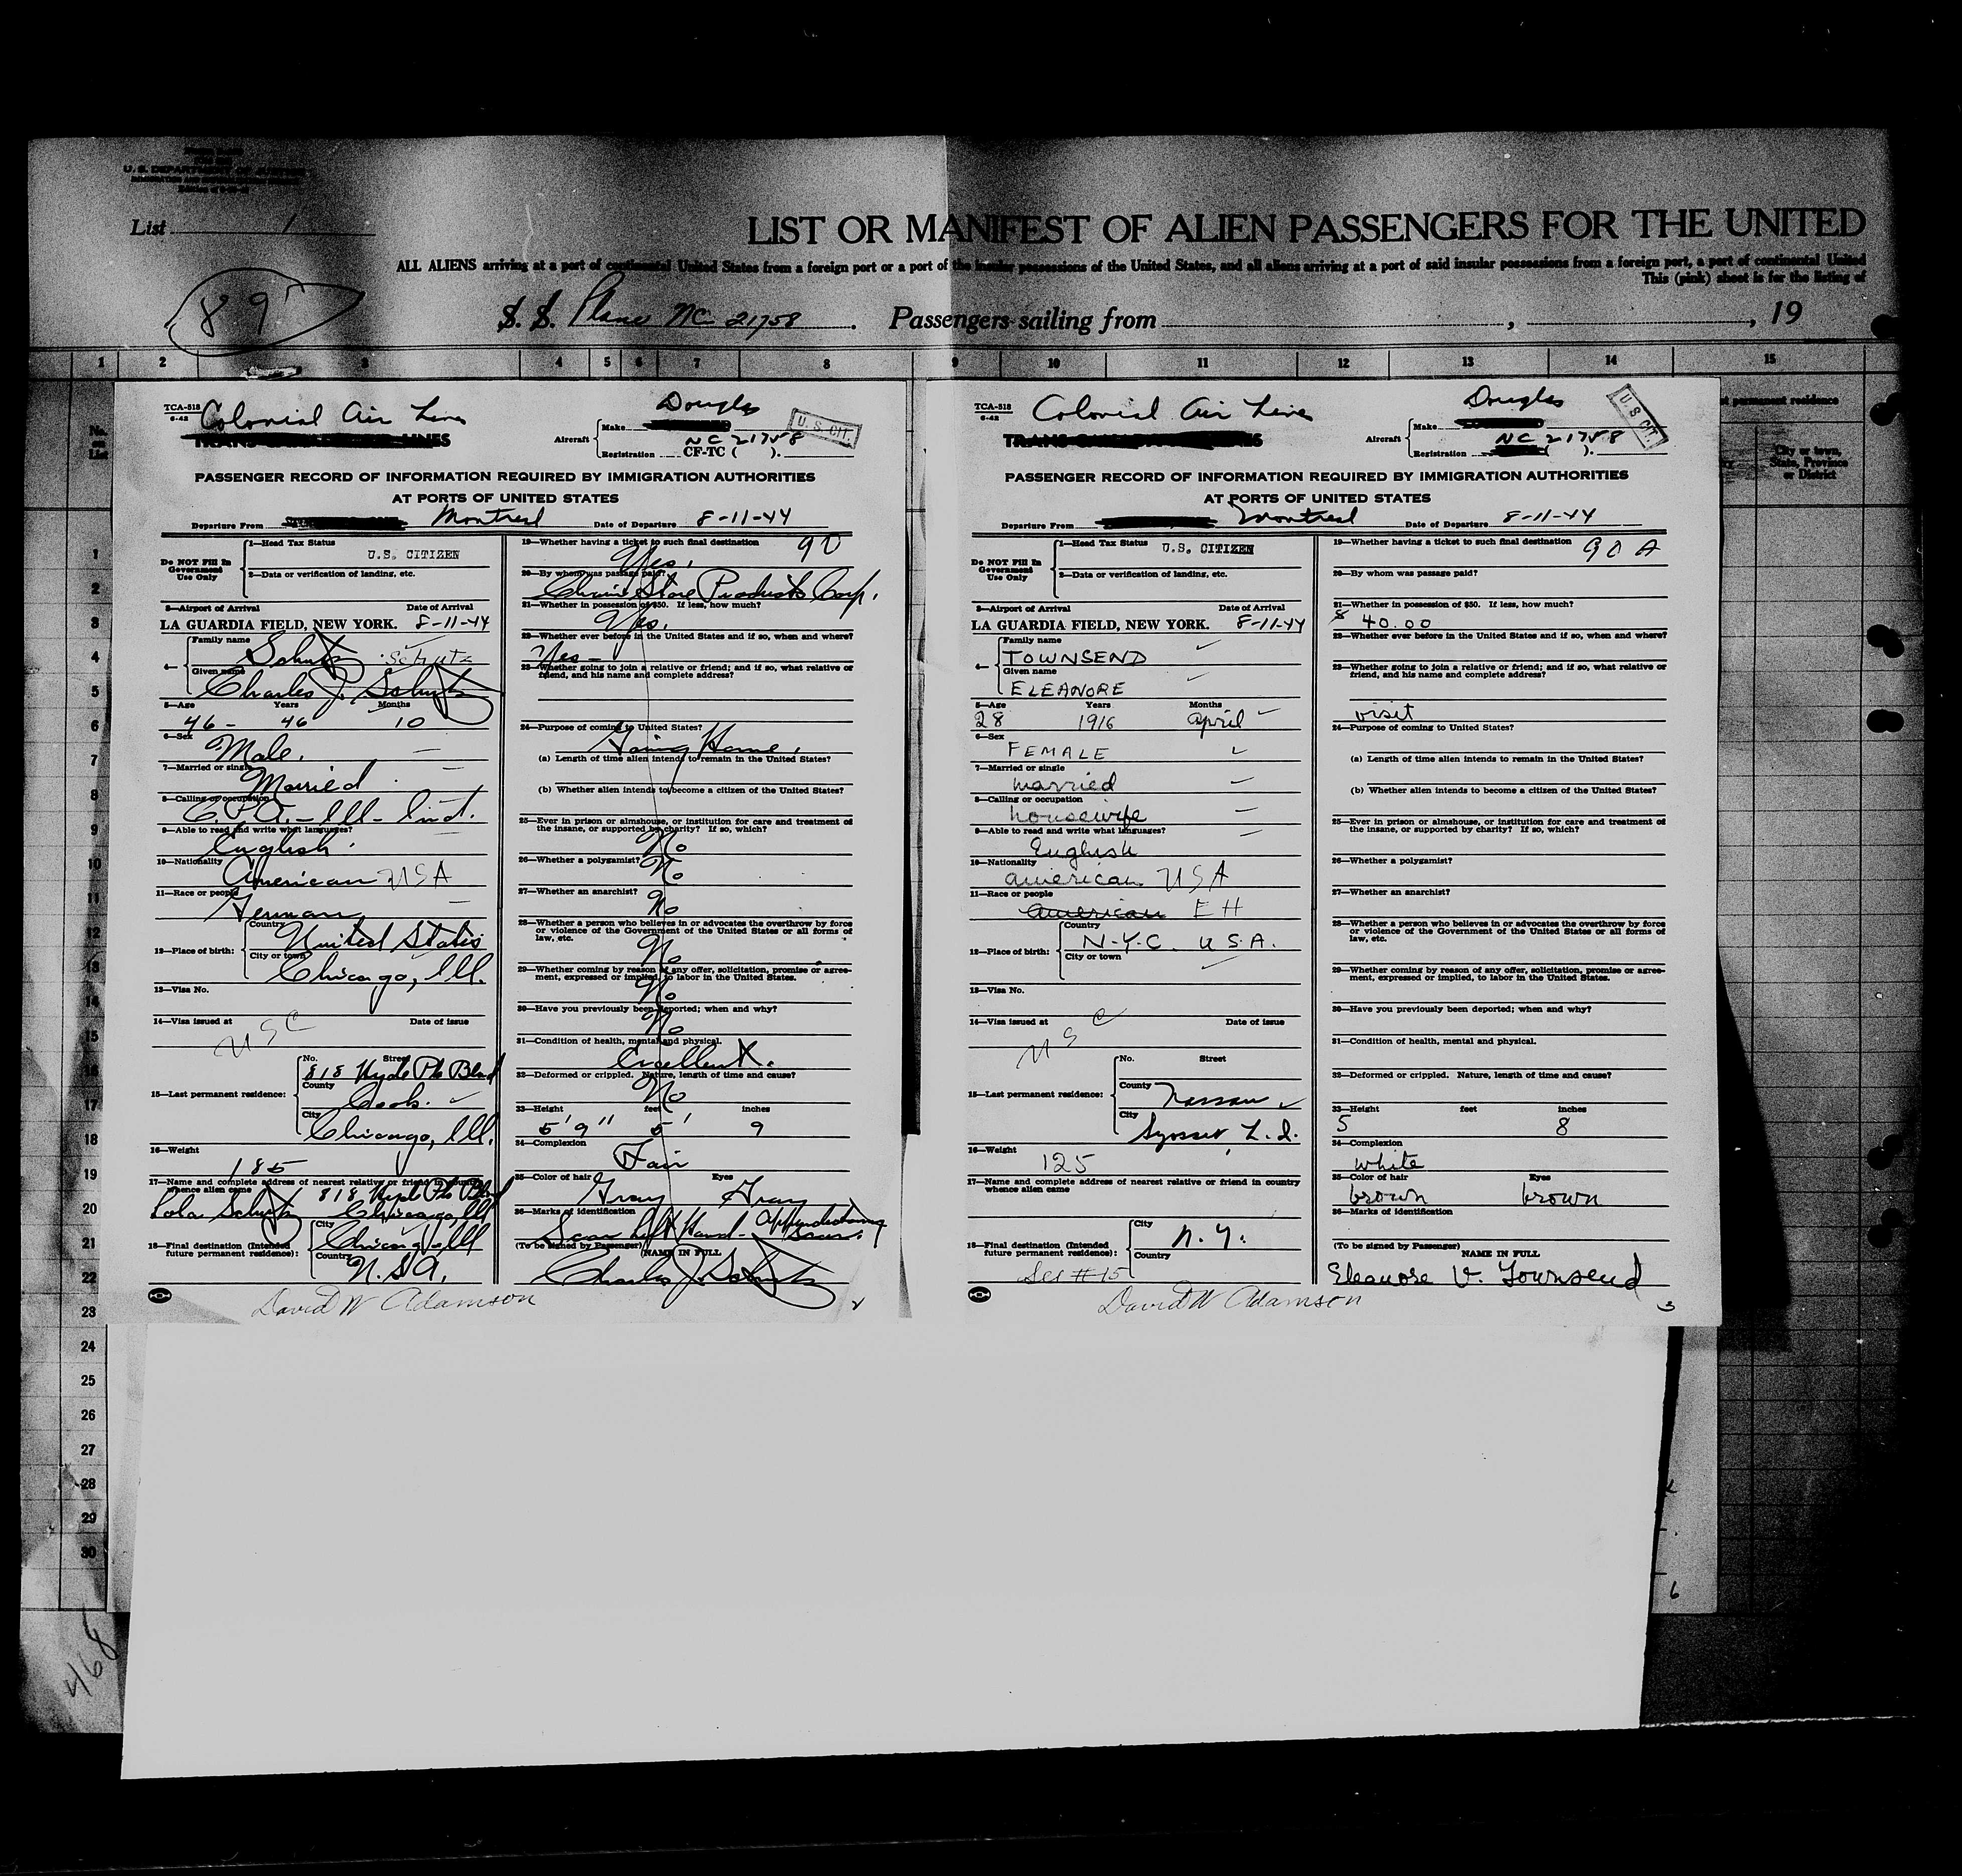 U. S. DEPARTMENT OF JUSTICE
List 1
LIST OR MANIFEST OF ALIEN PASSENGERS FOR THE UNITED
ALL ALIENS arriving at a port of continental United States from a foreign port or a port of the insular possessions of the United States, and all aliens arriving at a port of said insular possessions from a foreign port, a port of continental United
This (pink) sheet is for the listing of
89
S. S. Plane NC 21758. Passengers sailing from , , 19
1 2 3 4 5 6 7 8 9 10 11 12 13 14 15
No. on List
permanent residence
City or town, State, Province or District
1
2
3
4
5
6
7
8
9
10
11
12
13
14
15
16
17
18
19
20
21
22
23
24
25
26
27
28
29
30
468
TCA-518
6-42
Colonial Air Lines
TRANS-CANADA AIR LINES
Aircraft
Make Douglas
Registration NC 21758
CF-TC ( ).
U. S. CIT.
PASSENGER RECORD OF INFORMATION REQUIRED BY IMMIGRATION AUTHORITIES
AT PORTS OF UNITED STATES
Departure From Montreal Date of Departure 8-11-44
Do NOT Fill In Government Use Only
1—Head Tax Status U.S. CITIZEN
2—Data or verification of landing, etc.
3—Airport of Arrival Date of Arrival
LA GUARDIA FIELD, NEW YORK. 8-11-44
4— Family name Schutz Schutz
Given name Charles J. Schutz
5—Age Years Months
46- 46 10
6—Sex Male.
7—Married or single Married
8—Calling or occupation C.P.A.-Ill-Ind.
9—Able to read and write what languages? English.
10—Nationality American USA
11—Race or people German
12—Place of birth: Country United States
City or town Chicago, Ill.
13—Visa No.
14—Visa issued at Date of issue
USC
15—Last permanent residence: No. Street 818 Hyde Pk Blvd
County Cook.
City Chicago, Ill.
16—Weight 185
17—Name and complete address of nearest relative or friend in country whence alien came
Lola Schutz 818 Hyde Pk Blvd Chicago, Ill
18—Final destination (Intended future permanent residence): City Chicago Ill
Country U.S.A.
David W Adamson
19—Whether having a ticket to such final destination 90
Yes.
20—By whom was passage paid?
Chain Store Products Corp.
21—Whether in possession of $50. If less, how much?
Yes.
22—Whether ever before in the United States and if so, when and where?
Yes-
23—Whether going to join a relative or friend; and if so, what relative or friend, and his name and complete address?
24—Purpose of coming to United States?
Going Home.
(a) Length of time alien intends to remain in the United States?
(b) Whether alien intends to become a citizen of the United States?
25—Ever in prison or almshouse, or institution for care and treatment of the insane, or supported by charity? If so, which?
No
26—Whether a polygamist? No
27—Whether an anarchist? No
28—Whether a person who believes in or advocates the overthrow by force or violence of the Government of the United States or all forms of law, etc.
No
29—Whether coming by reason of any offer, solicitation, promise or agreement, expressed or implied, to labor in the United States.
No
30—Have you previously been deported; when and why?
No
31—Condition of health, mental and physical.
Excellent.
32—Deformed or crippled. Nature, length of time and cause?
No
33—Height feet inches
5'9" 5' 9
34—Complexion Fair
35—Color of hair Eyes
Gray Gray
36—Marks of identification
Scar left Hand- Appendectomy Scar.
(To be signed by Passenger) NAME IN FULL
Charles J. Schutz
2
TCA-518
6-42
Colonial Air Lines
Aircraft
Make Douglas
Registration NC 21758
( ).
U. S. CIT.
PASSENGER RECORD OF INFORMATION REQUIRED BY IMMIGRATION AUTHORITIES
AT PORTS OF UNITED STATES
Departure From Montreal Date of Departure 8-11-44
Do NOT Fill In Government Use Only
1—Head Tax Status U.S. CITIZEN
2—Data or verification of landing, etc.
3—Airport of Arrival Date of Arrival
LA GUARDIA FIELD, NEW YORK. 8-11-44
4— Family name TOWNSEND
Given name ELEANORE
5—Age Years Months
28 1916 April
6—Sex FEMALE
7—Married or single married
8—Calling or occupation housewife
9—Able to read and write what languages? English
10—Nationality american USA
11—Race or people American EH
12—Place of birth: Country N.Y.C. U.S.A.
City or town
13—Visa No.
14—Visa issued at Date of issue
USC
15—Last permanent residence: No. Street
County Nassau
City Syosset L.I.
16—Weight 125
17—Name and complete address of nearest relative or friend in country whence alien came
18—Final destination (Intended future permanent residence): City N.Y.
Country
See #15
David W Adamson
19—Whether having a ticket to such final destination 90 A
20—By whom was passage paid?
21—Whether in possession of $50. If less, how much?
$ 40.00
22—Whether ever before in the United States and if so, when and where?
23—Whether going to join a relative or friend; and if so, what relative or friend, and his name and complete address?
visit
24—Purpose of coming to United States?
(a) Length of time alien intends to remain in the United States?
(b) Whether alien intends to become a citizen of the United States?
25—Ever in prison or almshouse, or institution for care and treatment of the insane, or supported by charity? If so, which?
26—Whether a polygamist?
27—Whether an anarchist?
28—Whether a person who believes in or advocates the overthrow by force or violence of the Government of the United States or all forms of law, etc.
29—Whether coming by reason of any offer, solicitation, promise or agreement, expressed or implied, to labor in the United States.
30—Have you previously been deported; when and why?
31—Condition of health, mental and physical.
32—Deformed or crippled. Nature, length of time and cause?
33—Height feet inches
5 8
34—Complexion
white
35—Color of hair Eyes
brown brown
36—Marks of identification
(To be signed by Passenger)
NAME IN FULL
Eleanore V. Townsend
3
6